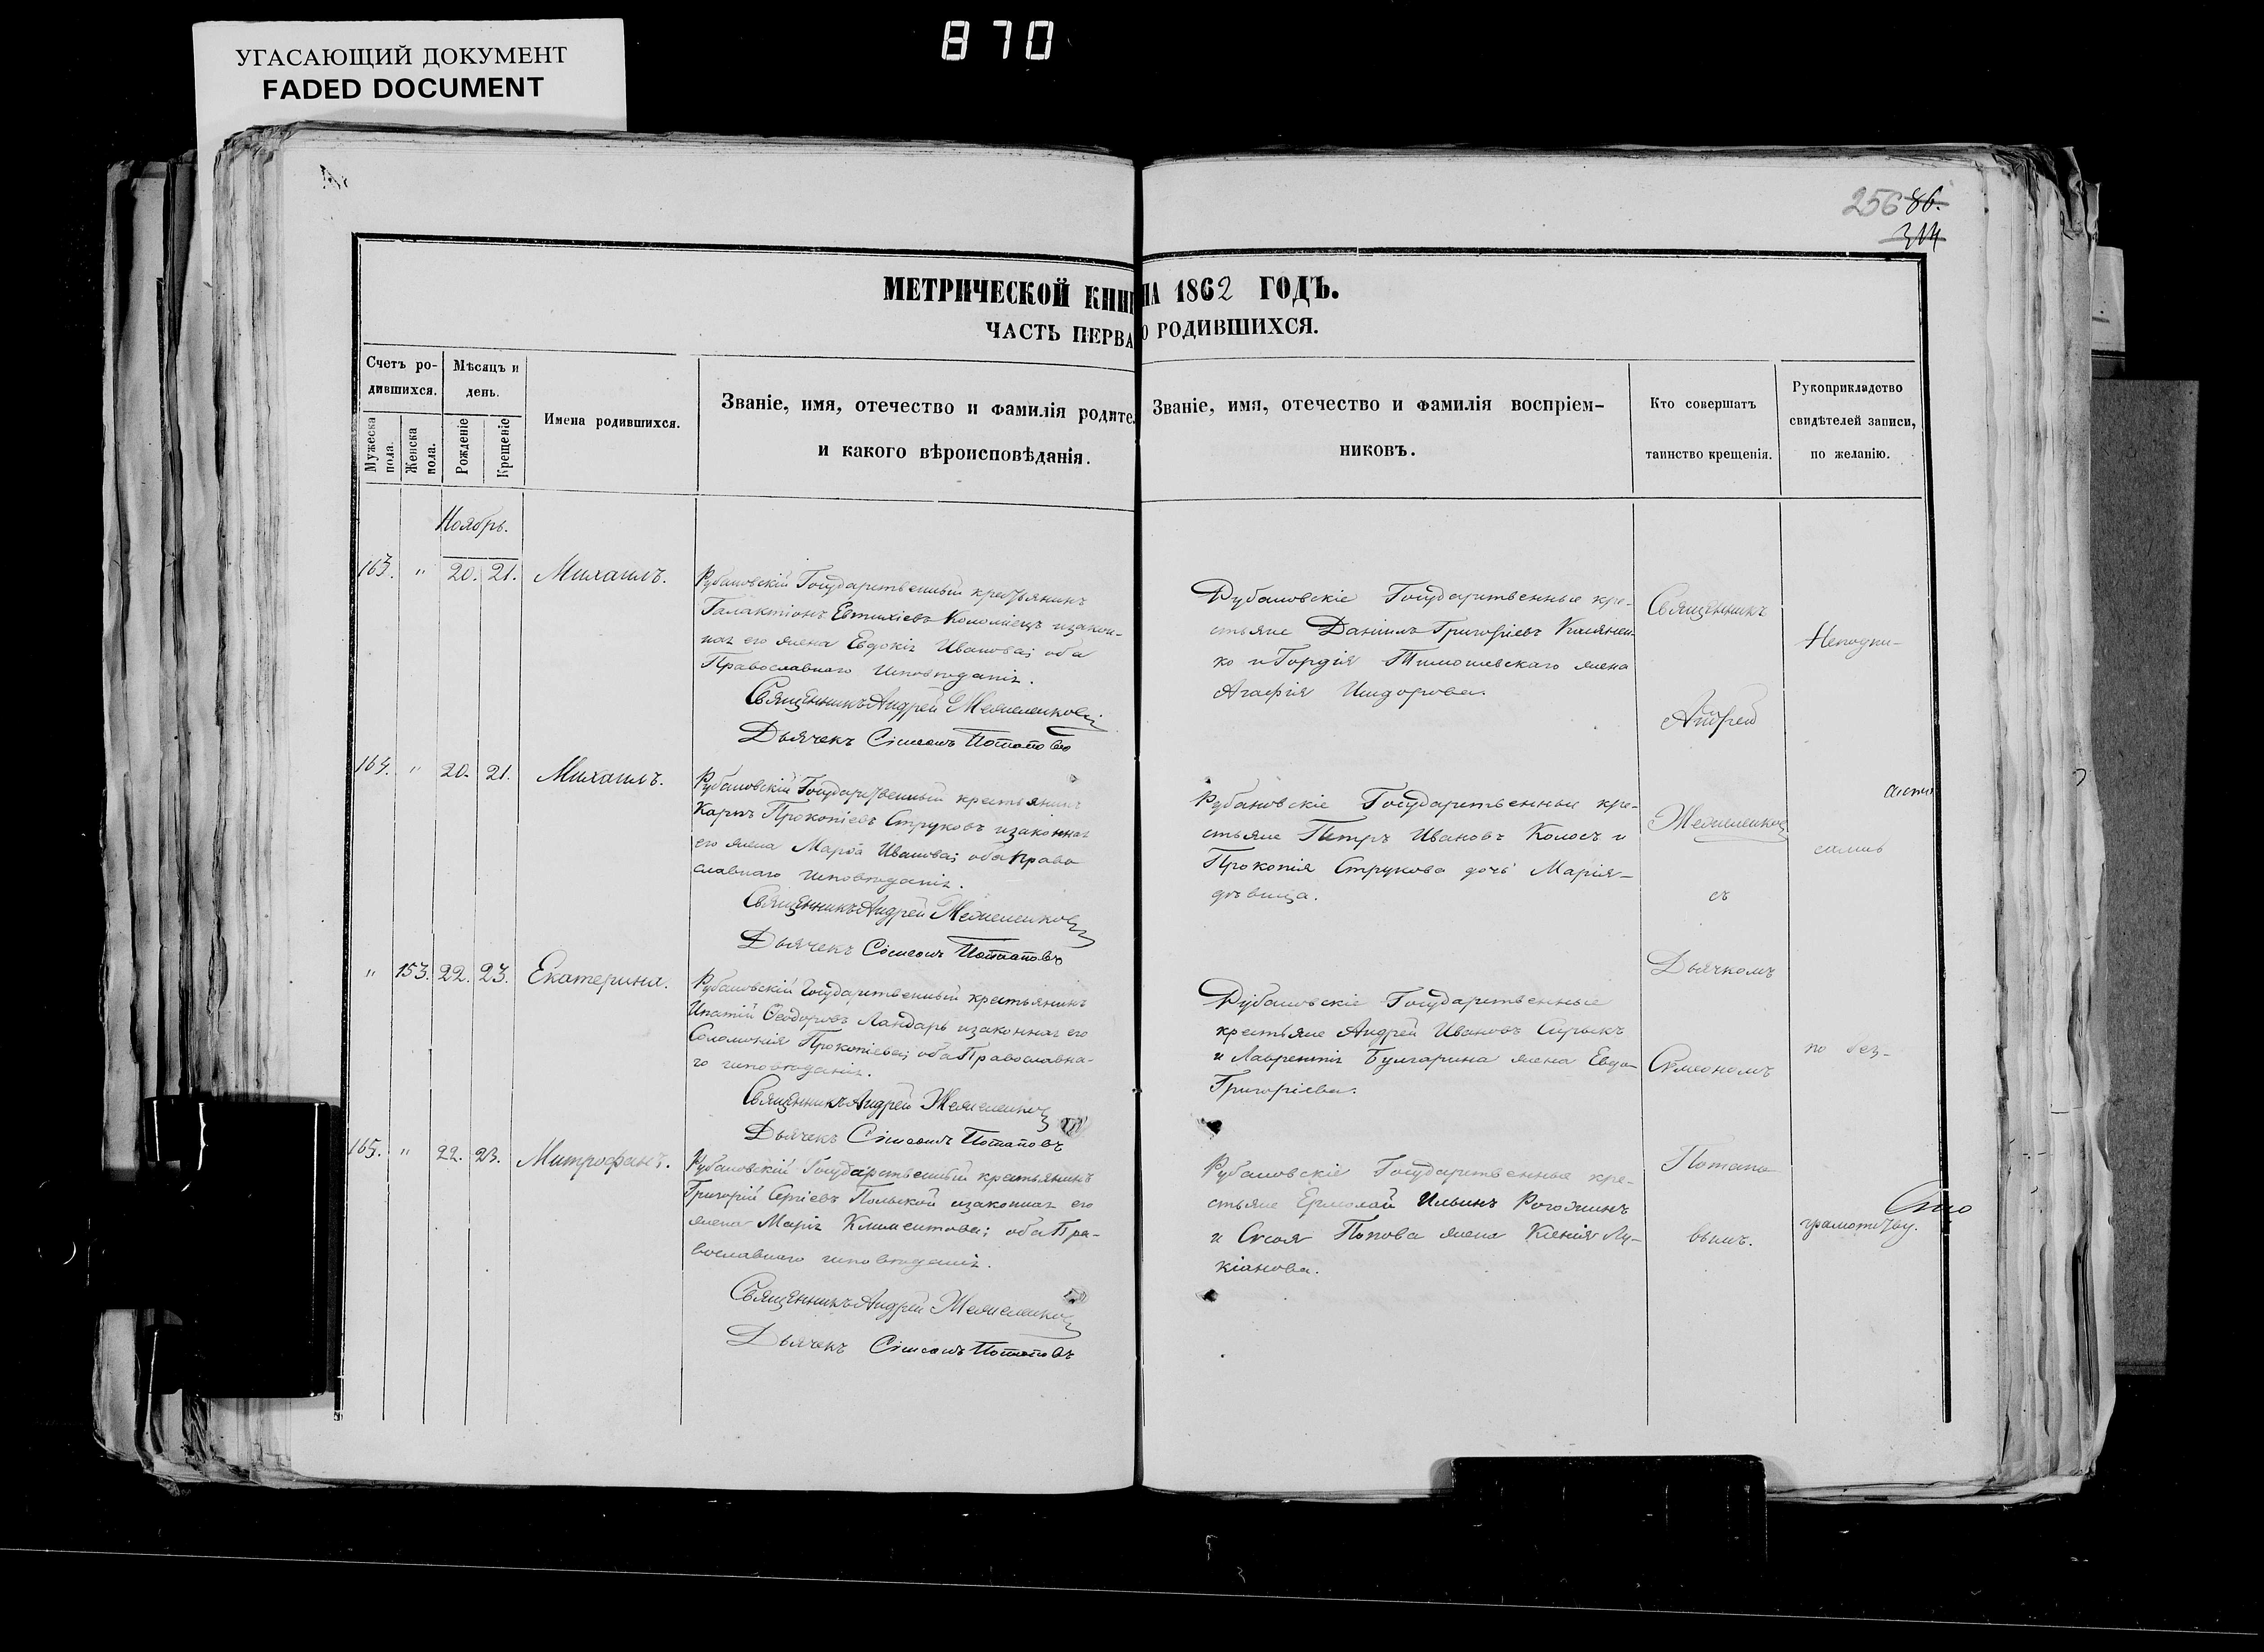 870
УГАСАЮЩИЙ ДОКУМЕНТ
FADED DOCUMENT
256 86.
314
МЕТРИЧЕСКОЙ КНИ НА 1862 ГОДЪ.
ЧАСТЬ ПЕРВА О РОДИВШИХСЯ.
Счетъ ро-
дившихся.
Мужеска
пола.
Женска
пола.
Мѣсяцъ и
день.
Рожденіе
Крещеніе
Имена родившихся.
Званіе, имя, отечество и фамилія родите
и какого вѣроисповѣданія.
Званіе, имя, отечество и фамилія воспріем-
никовъ.
Кто совершатъ
таинство крещенія.
Рукоприкладство
свидѣтелей записи,
по желанію.
Ноябрь.
163. " 20. 21. Михаилъ.
Рубановскій Государственный крестьянинъ
Галактіонъ Евтихіевъ Коломіецъ и закон-
ная его жена Евдокія Иванова; оба
Православнаго исповѣданія.
Священникъ Андрей
Дьячекъ Сімеонъ Потаповъ
Рубановскіе Государственные кре-
стьяне Даніилъ Григоріевъ
ко и Гордія Тимошевскаго жена
Агафія Исидорова.
164. " 20. 21. Михаилъ.
Рубановскій Государственный крестьянинъ
Карпъ Прокопіевъ Струковъ и законная
его жена Марѳа Иванова; оба Право
славнаго исповѣданія.
Священникъ Андрей
Дьячекъ Сімеонъ Потаповъ
Рубановскіе Государственные кре-
стьяне Петръ Ивановъ Колосъ и
Прокопія Струкова дочь Марія-
дѣвица.
" 153. 22. 23. Екатерина.
Рубановскій Государственный крестьянинъ
Ипатій Ѳеодоровъ Ландарь и законная его
Соломонія Прокопіева; оба Православна-
го исповѣданія.
Священникъ Андрей
Дьячекъ Сімеонъ Потаповъ
Рубановскіе Государственные
крестьяне Андрей Ивановъ
и Лаврентія Булгарина жена Евдо-
Григоріева.
165. " 22. 23. Митрофанъ.
Рубановскій Государственный крестьянинъ
Григорій Сергіевъ Польской и законная его
жена Марія Климентова; оба Пра-
вославнаго исповѣданія.
Священникъ Андрей
Дьячекъ Сімеонъ Потаповъ
Рубановскіе Государственные кре-
стьяне Ермолай Ильинъ Рогожинъ
и Попова жена Ксенія Лу-
кіанова.
Священникъ
Андрей
съ
Дьячкомъ
Сѵмеономъ
Потапо
вымъ.
Неподпи-
сались
по без-
грамотству.